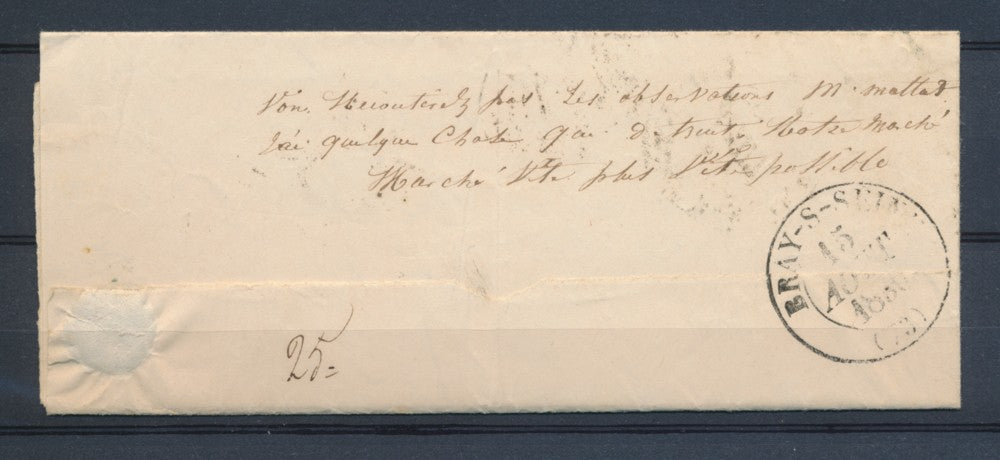 Von Hecouterez pas les observations M. mattat
J'ai quelque Chose qui d truit Notre Maché
Marché Vite plus Vite possible
BRAY-S-SEINE
15
AOUT
(73)
25=